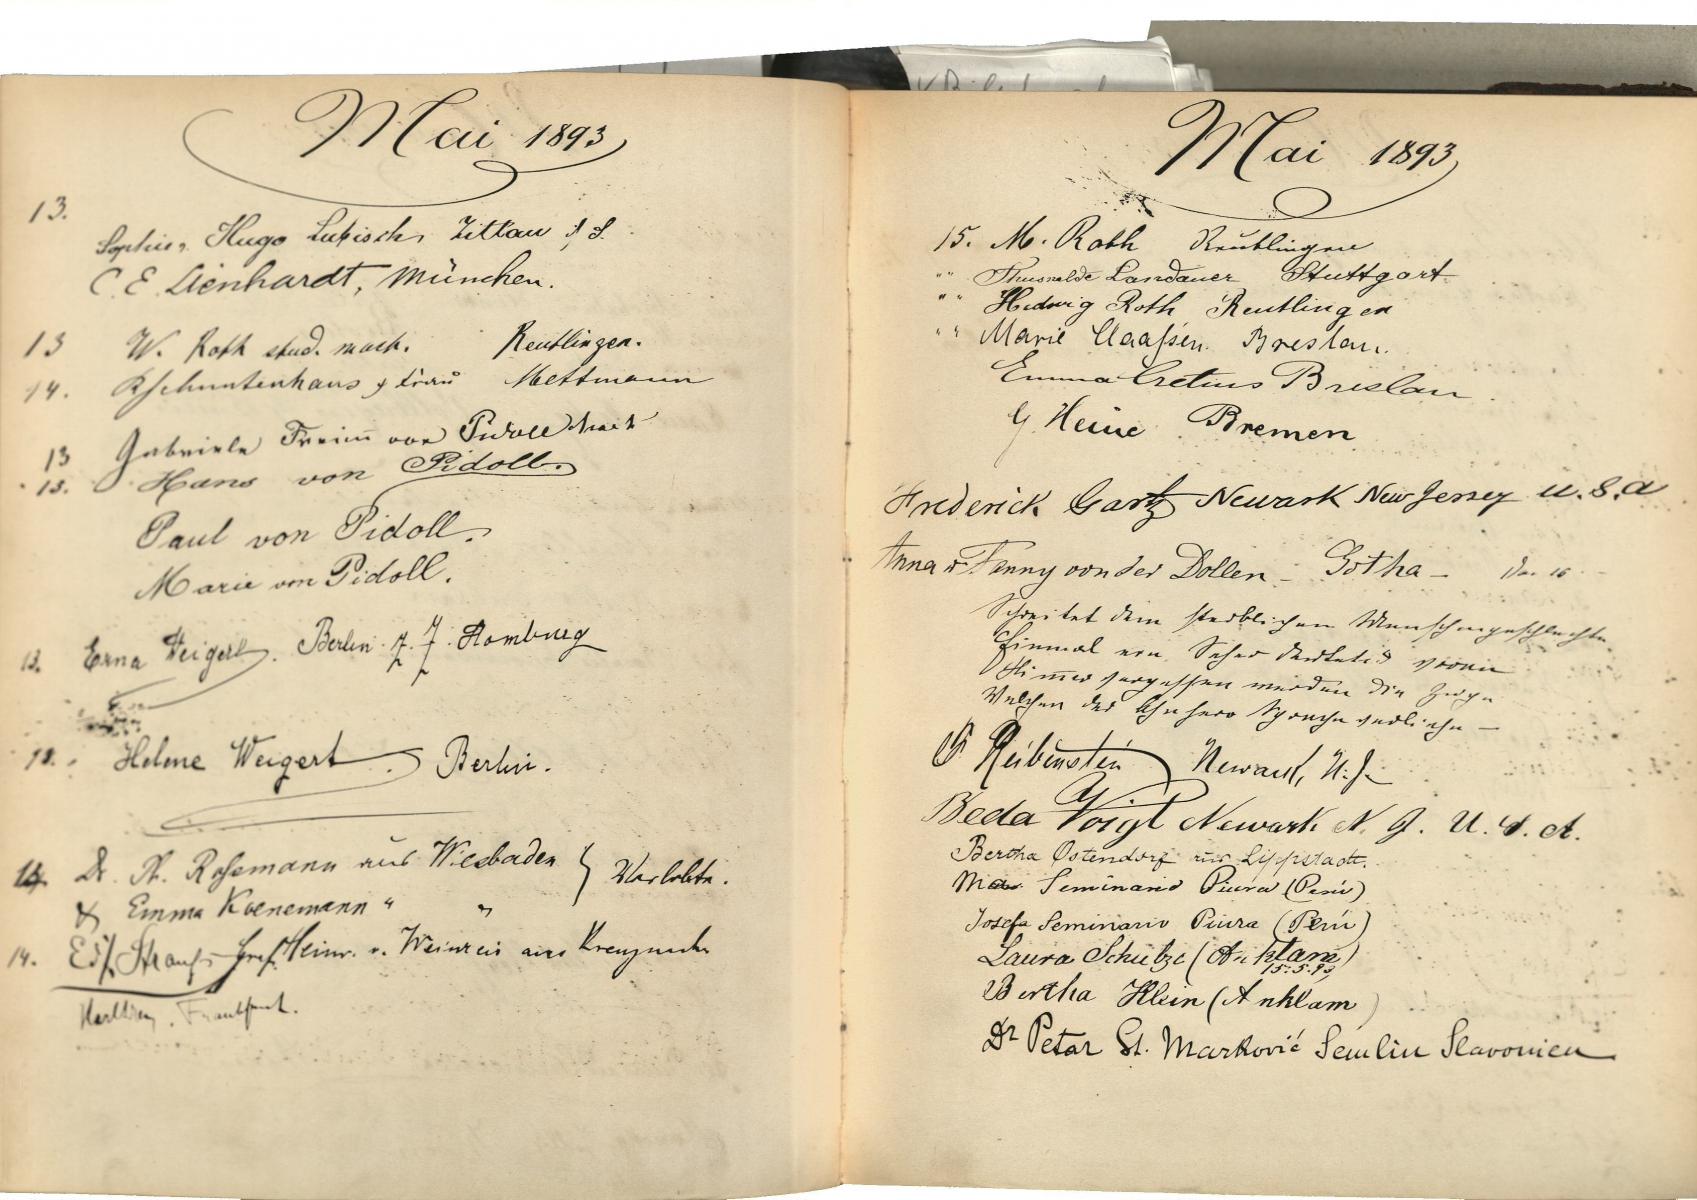 Mai 1893
13.
Sophie u. Hugo Lubisch, Zittau i. S.
C. E. Lienhardt, München.
13 W. Roth stud. mach. Reutlingen.
14. Mettmann
13 Gabriele Freiin von Pidoll
13. Hans von Pidoll.
Paul von Pidoll.
Marie von Pidoll.
13. Erna Weigert. Berlin. z. Z. Homburg
13. Helene Weigert. Berlin.
14. Dr. Ph. Rossmann aus Wiesbaden } Verlobte.
& Emma Koenemann " "
14. Heinr. v. Weinreis aus Kreuznach
Frankfurt.
Mai 1893
15. M. Roth Reutlingen
"" Thusnelde Landauer Stuttgart
"" Hedwig Roth Reutlingen
"" Marie Claaßen. Breslau.
Emma Cretius Breslau.
G. Heine Bremen
Frederick Gartz Newark New Jersey U.S.A
Anna u Fanny von der Dollen – Gotha –
Schreitet dem sterblichen Menschengeschlechte
Einmal ein Seher voran
Nimmer vergessen werden die
Welchen der Sprache verliehn –
Reibenstein Newark, N.J.
Beda Voigt Newark N. J. U. S. A.
Bertha Ostendorf aus Lippstadt.
Seminario Piura (Perú)
Josefa Seminario Piura (Perú)
Laura Schütze (Anklam)
15.5.93
Bertha Klein (Anklam)
Dr Petar St. Marković Semlin Slavonien